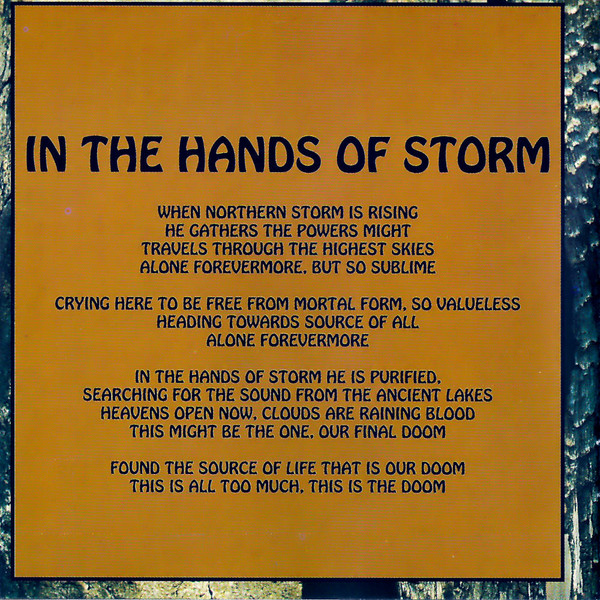 IN THE HANDS OF STORM
WHEN NORTHERN STORM IS RISING
HE GATHERS THE POWERS MIGHT
TRAVELS THROUGH THE HIGHEST SKIES
ALONE FOREVERMORE, BUT SO SUBLIME
CRYING HERE TO BE FREE FROM MORTAL FORM, SO VALUELESS
HEADING TOWARDS SOURCE OF ALL
ALONE FOREVERMORE
IN THE HANDS OF STORM HE IS PURIFIED,
SEARCHING FOR THE SOUND FROM THE ANCIENT LAKES
HEAVENS OPEN NOW, CLOUDS ARE RAINING BLOOD
THIS MIGHT BE THE ONE, OUR FINAL DOOM
FOUND THE SOURCE OF LIFE THAT IS OUR DOOM
THIS IS ALL TOO MUCH, THIS IS THE DOOM